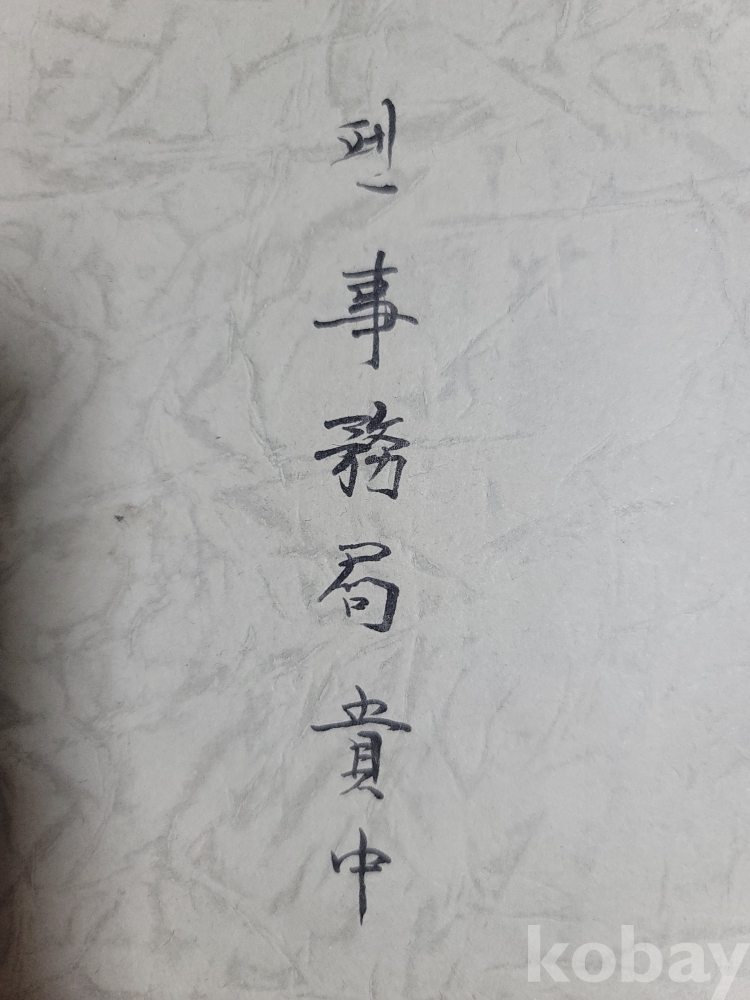 펜事務局貴中
kobay